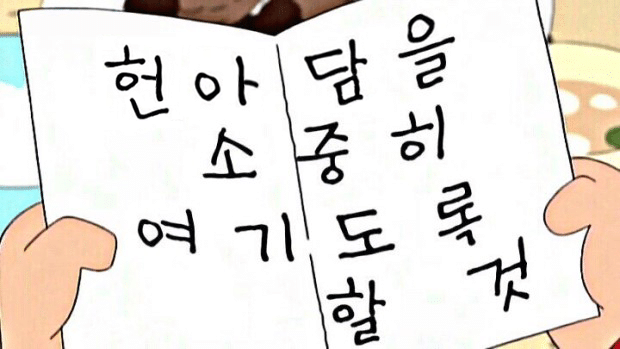 헌아 담을
소중히
여기도록
할 것